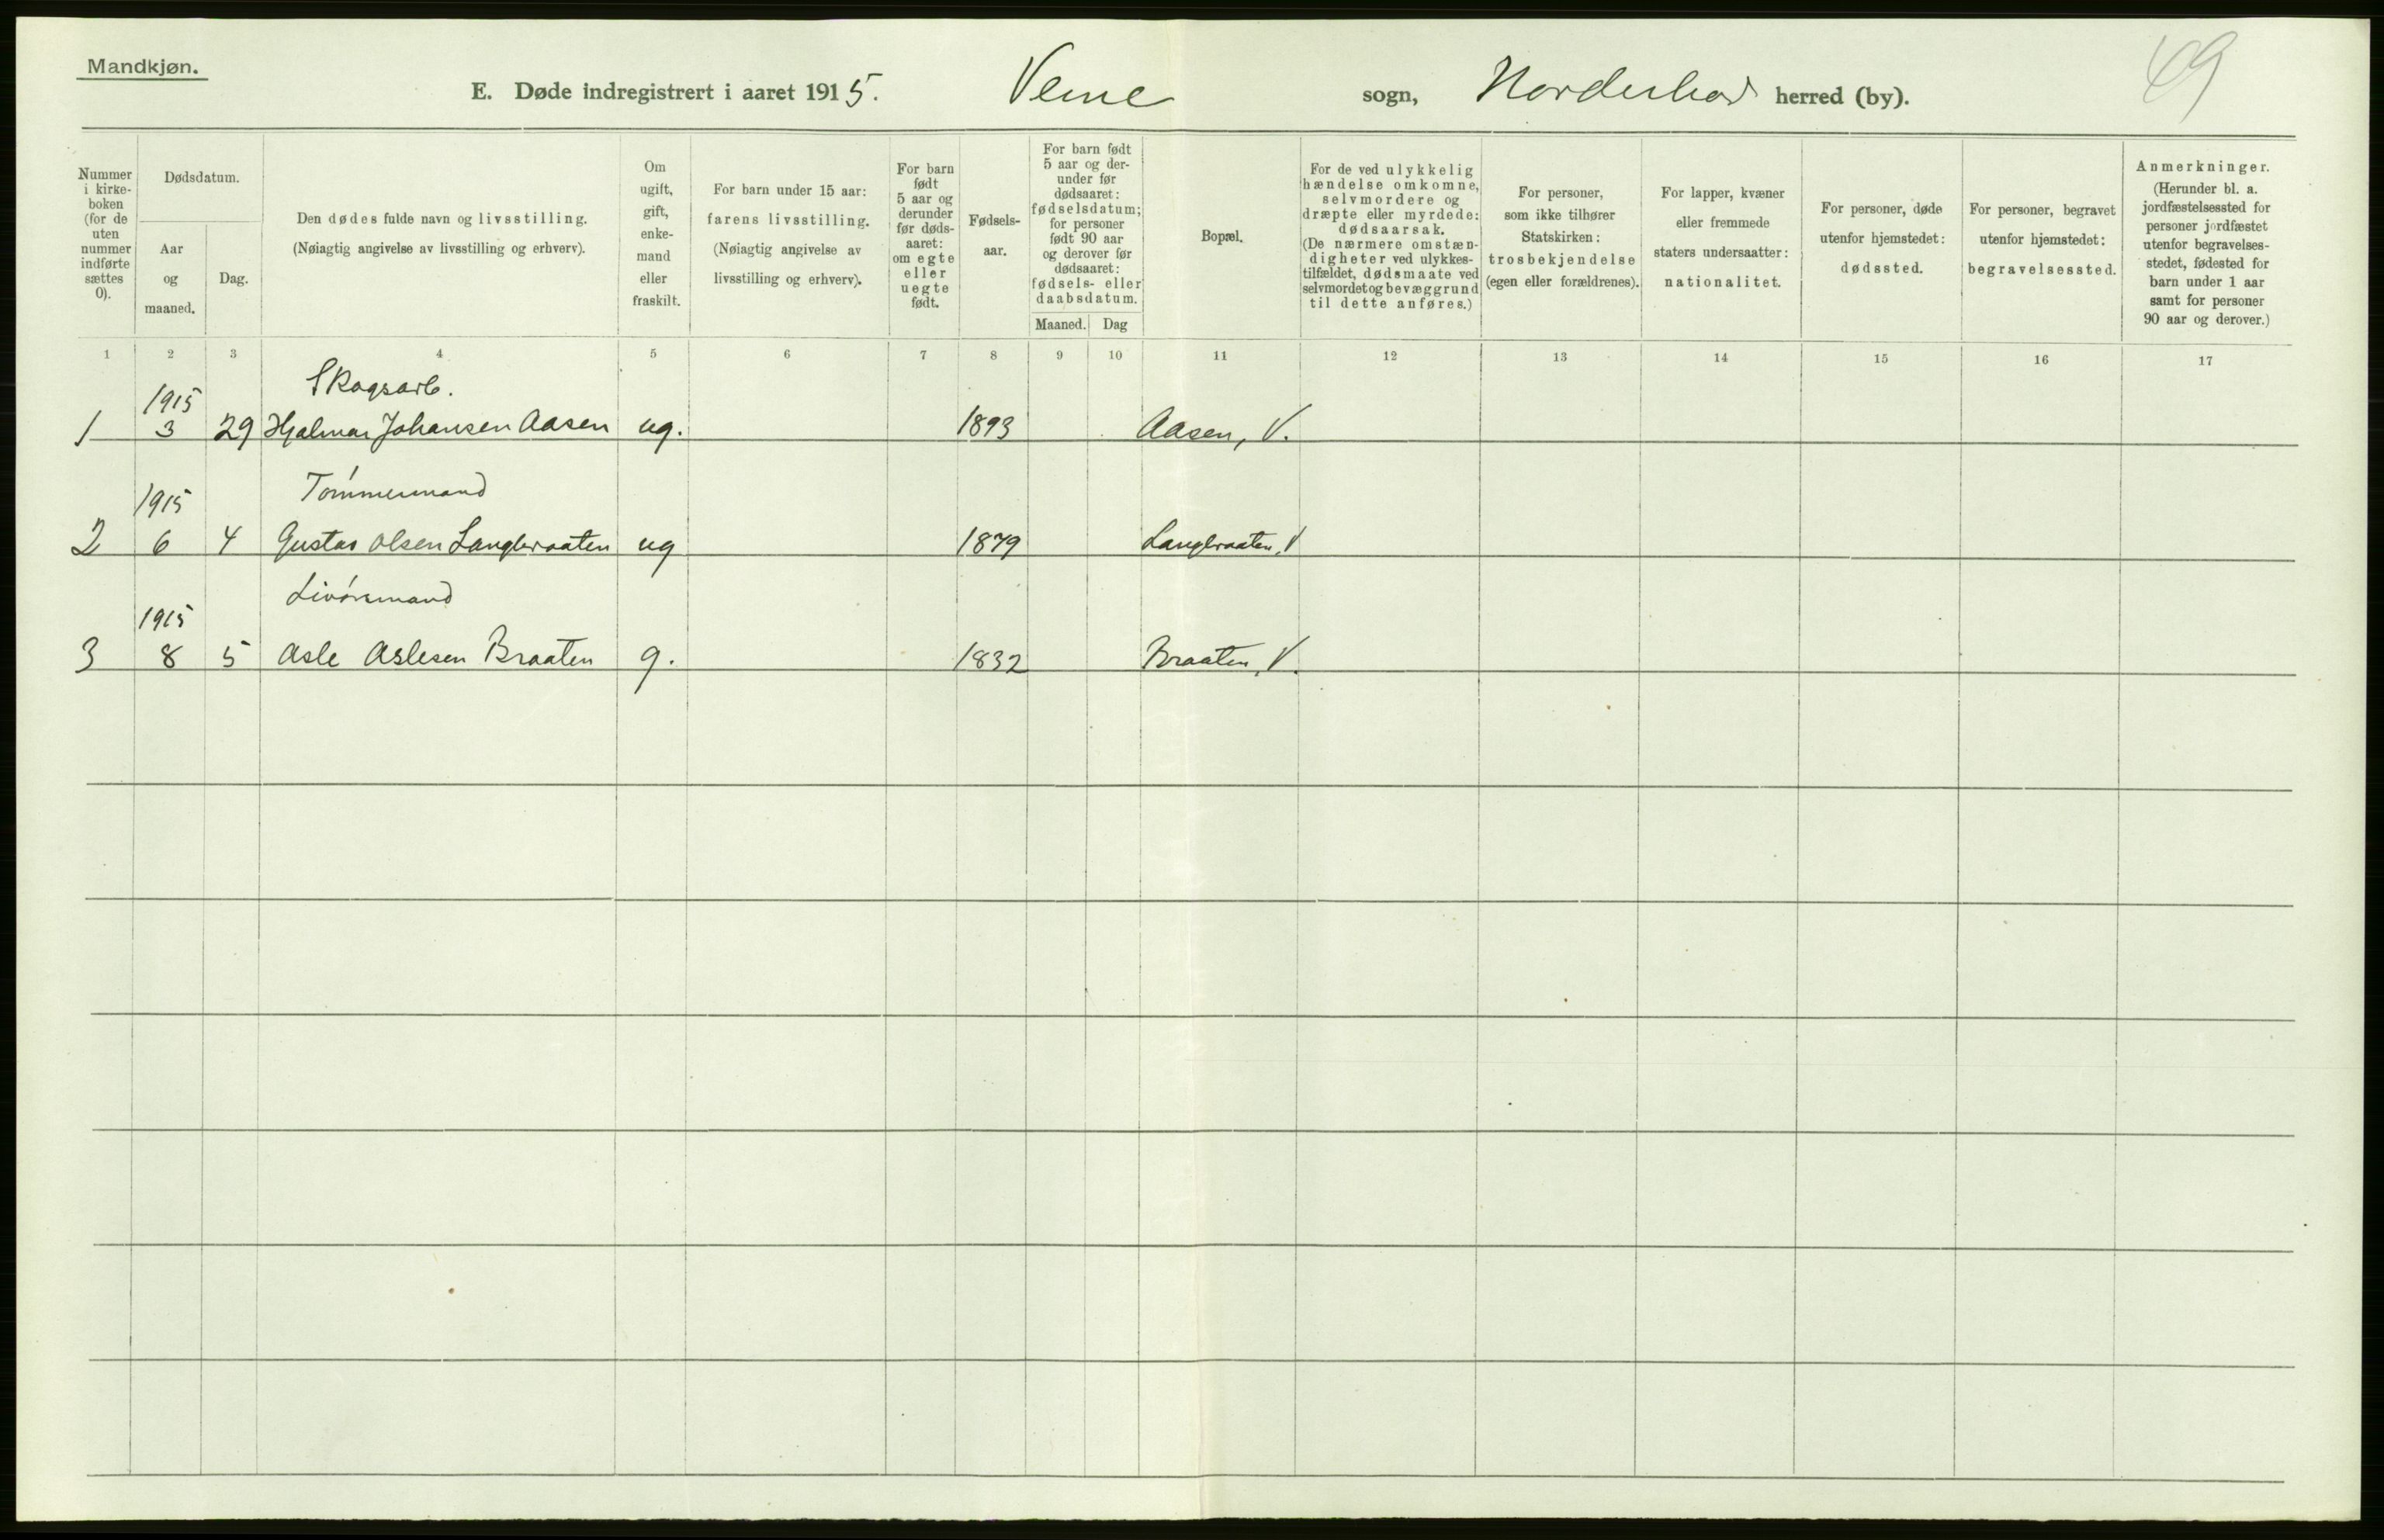 Mandkjøn.
E. Døde indregistrert i aaret 1915. Veme sogn, Norderhov herred (by).
49
Nummer i kirke- boken (for de uten nummer indførte sættes 0).
Dødsdatum.
Aar og maaned.
Dag.
Den dødes fulde navn og livsstilling.
(Nøiagtig angivelse av livsstilling og erhverv).
Om ugift, gift, enke- mand eller fraskilt.
For barn under 15 aar:
farens livsstilling.
(Nøiagtig angivelse av
livsstilling og erhverv).
For barn født 5 aar og derunder før døds- aaret: om egte eller uegte født.
Fødsels- aar.
For barn født 5 aar og der- under før dødsaaret: fødselsdatum; for personer født 90 aar og derover før dødsaaret: fødsels- eller daabsdatum.
Maaned. Dag
Bopæl.
For de ved ulykkelig hændelse omkomne, selvmordere og dræpte eller myrdede: dødsaarsak. (De nærmere omstæn- digheter ved ulykkes- tilfældet, dødsmaate ved selvmordet og bevæggrund til dette anføres.)
For personer, som ikke tilhører Statskirken: trosbekjendelse (egen eller forældrenes).
For lapper, kvæner eller fremmede staters undersaatter: nationalitet.
For personer, døde utenfor hjemstedet: dødssted.
For personer, begravet utenfor hjemstedet: begravelsessted.
Anmerkninger. (Herunder bl. a. jordfæstelsessted for personer jordfæstet utenfor begravelses- stedet, fødested for barn under 1 aar samt for personer 90 aar og derover.)
1 2 3 4 5 6 7 8 9 10 11 12 13 14 15 16 17
1915 Skogsarb.
1 3 29 Hjalmar Johansen Aasen ug. 1893 Aasen, V.
1915 Tømmermand
2 6 4 Gustav Olsen Langbraaten ug 1879 Langbraaten, V
1915 Livøremand
3 8 5 Asle Aslesen Braaten g. 1832 Braaten, V.